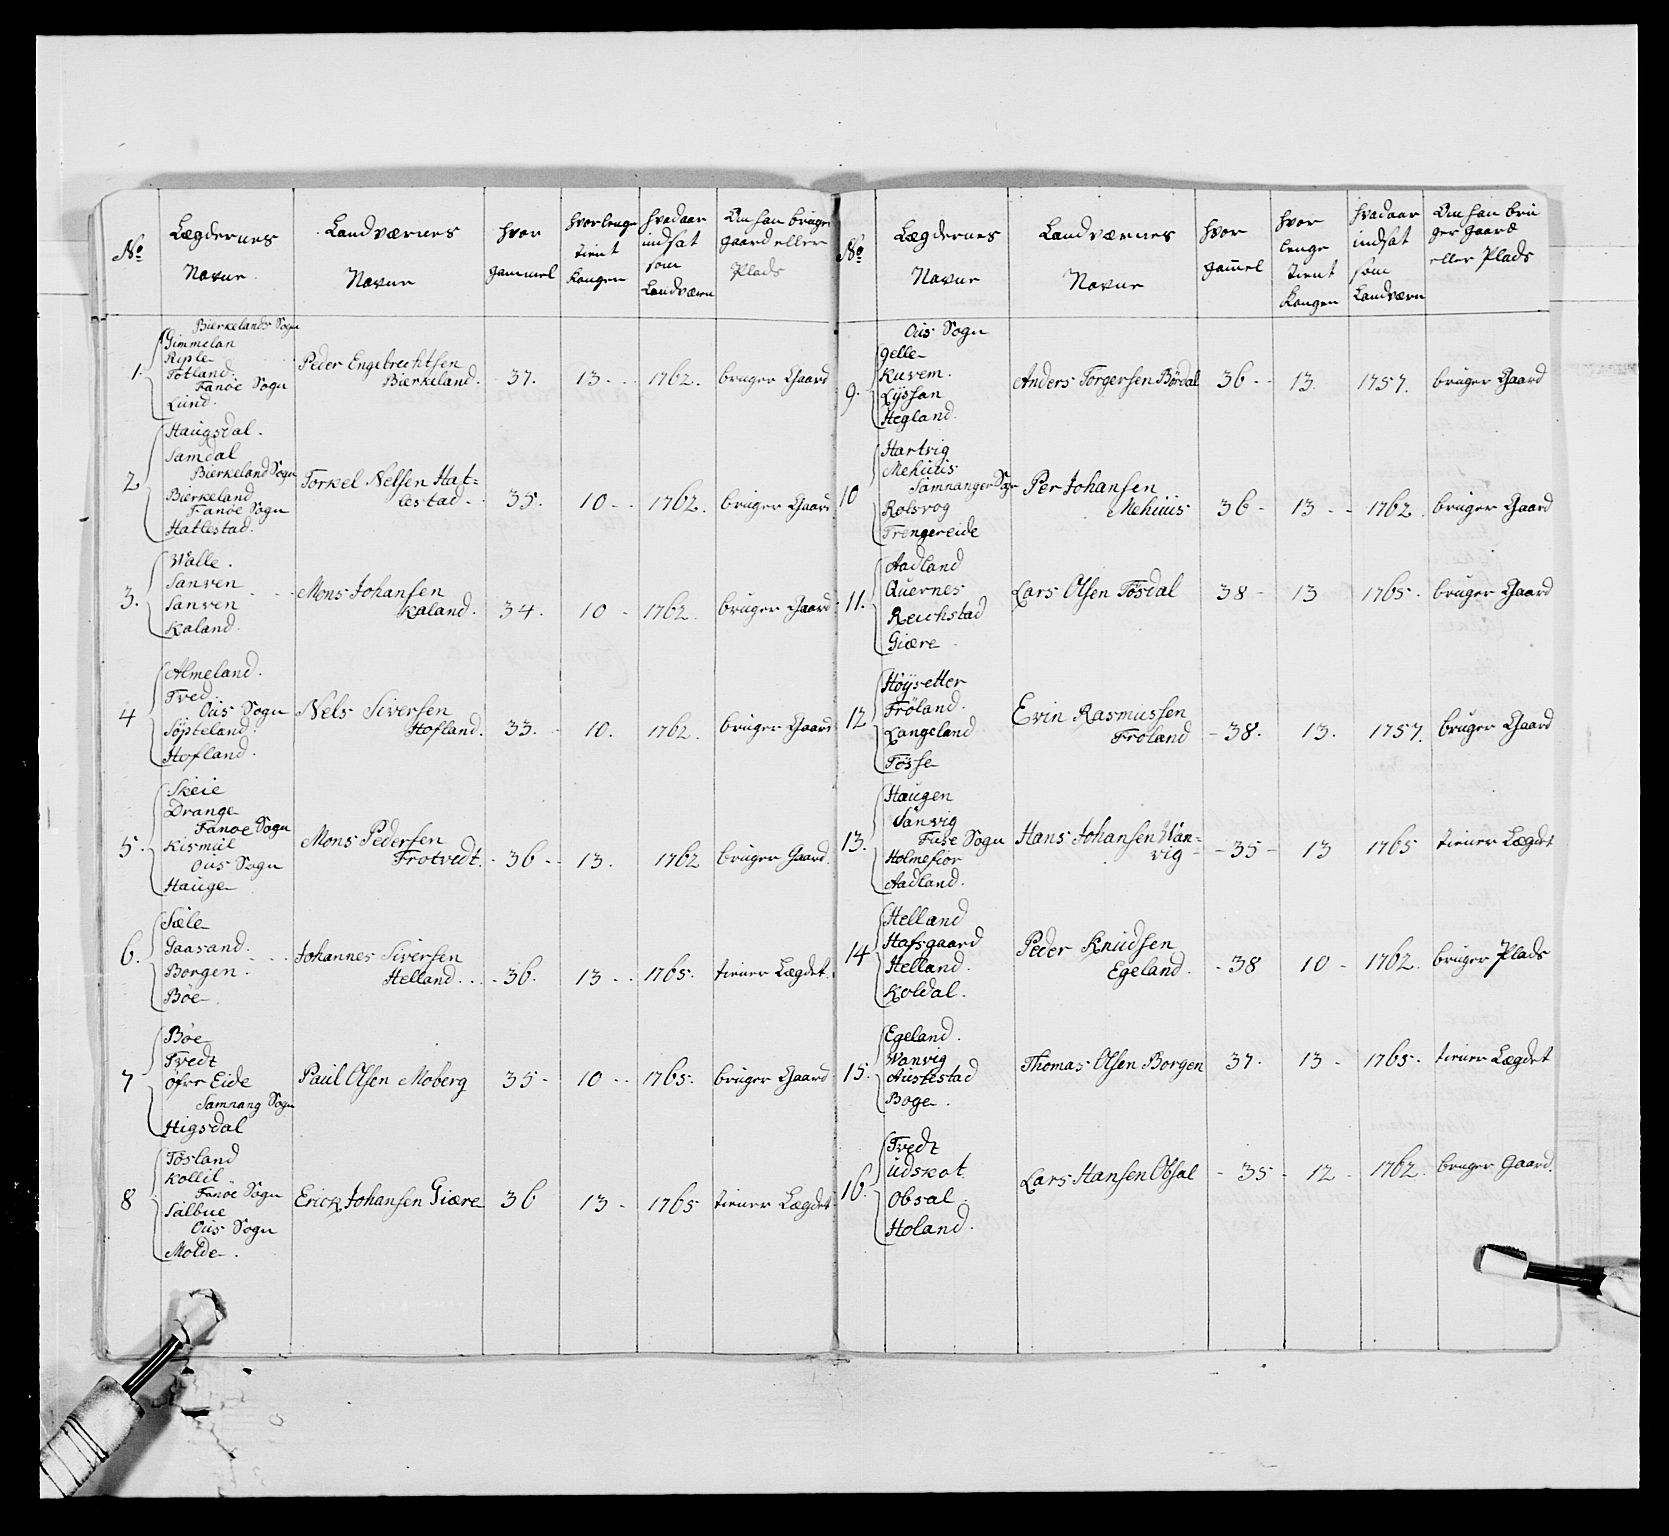 No
Lægdernes
Navne
Landværnes
Navne
hvor
gammel
hvorlenge
tient
Kongen
hvadaar
indsat
som
Landværn
Om han bruger
gaard eller
Plads
1.
Bierkelands Sogn
Gimmelan
Riple
Totland
Fanøe Sogn
Lund.
Peder Engebrechtsen
Bierkeland. 37. 13 1762. bruger Gaard
2
Haugsdal.
Samdal
Bierkeland Sogn
Bierkeland
Fanøe Sogn
Hatlestad.
Torkel Nelsen Hat=
lestad 35. 10 1762. bruger Gaard
3.
Walle.
Sanven
Sanven
Kaland.
Mons Johansen
Kaland. 34. 10 1762. bruger Gaard
4
Almeland.
Tved
Ous Sogn
Söpteland
Hofland.
Nels Siversen
Hofland. 33. 10. 1762. bruger Gaard
5.
Skeie
Drange
Fanøe Sogn
Kismül
Ous Sogn
Hauge
Mons Pedersen
Frotvedt. 36 13. 1762 bruger Gaard.
6.
Sæle
Gaasand.
Borgen.
Bøe.
Johannes Siversen
Helland 36. 13 1765. tiener Lægdet.
7
Bøe
Tvedt
öfre Eide
Samnang Sogn
Higsdal
Paul Olsen Moberg 35 10 1765. bruger Gaard
8
Tösland
Kollil
Fanøe Sogn
Salbue
Ous Sogn
Molde.
Erick Johansen Giære 36 13 1765 tiener Lægdet
No
Lægdernes
Navne
Landværnes
Navne
hvor
gamel
hvor
lenge
tient
Kongen
hvadaar
indsat
som
Landværn
Om han bru
ger gaard
eller Plads
9.
Ous Sogn
Gelle
Kuvem.
Lyssan
Hegland.
Anders Torgersen Bördal 36 13. 1757. bruger Gaard
10
Hartvig
Mehuus
Samnanger Sogn
Rolsvog
Trengereide
Per Johansen
Mehuus 36 13 1762. bruger Gaard
11.
Aadland
Quernes
Reichstad
Giære
Lars Olsen Tösdal 38 13 1765. bruger Gaard
12
Höysetter
Fröland.
Langeland
Tösse
Evin Rasmussen
Froland 38. 13. 1757. bruger Gaard
13.
Haugen
Vanvig
Fuse Sogn
Holmefior
Aadland.
Hans Johansen Wan=
vig 35 13 1765 tiener Lægdet
14
Helland
Hafsgaard
Helland.
Koldal.
Peder Knudsen
Egeland. 38 10 1762. bruger Plads
15.
Egeland.
Wanvig
Austestad
Boge.
Thomas Olsen Borgen 37. 13 1765. tiener Lægdet
16.
Tvedt
Udskot
Obsal
Holand.
Lars Hansen Obsal 35 12 1762. bruger Gaard.